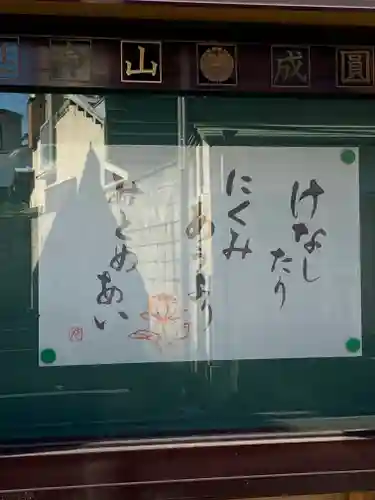 山 成 圓
けなし
たり
にくみ
あうより
みとめあい